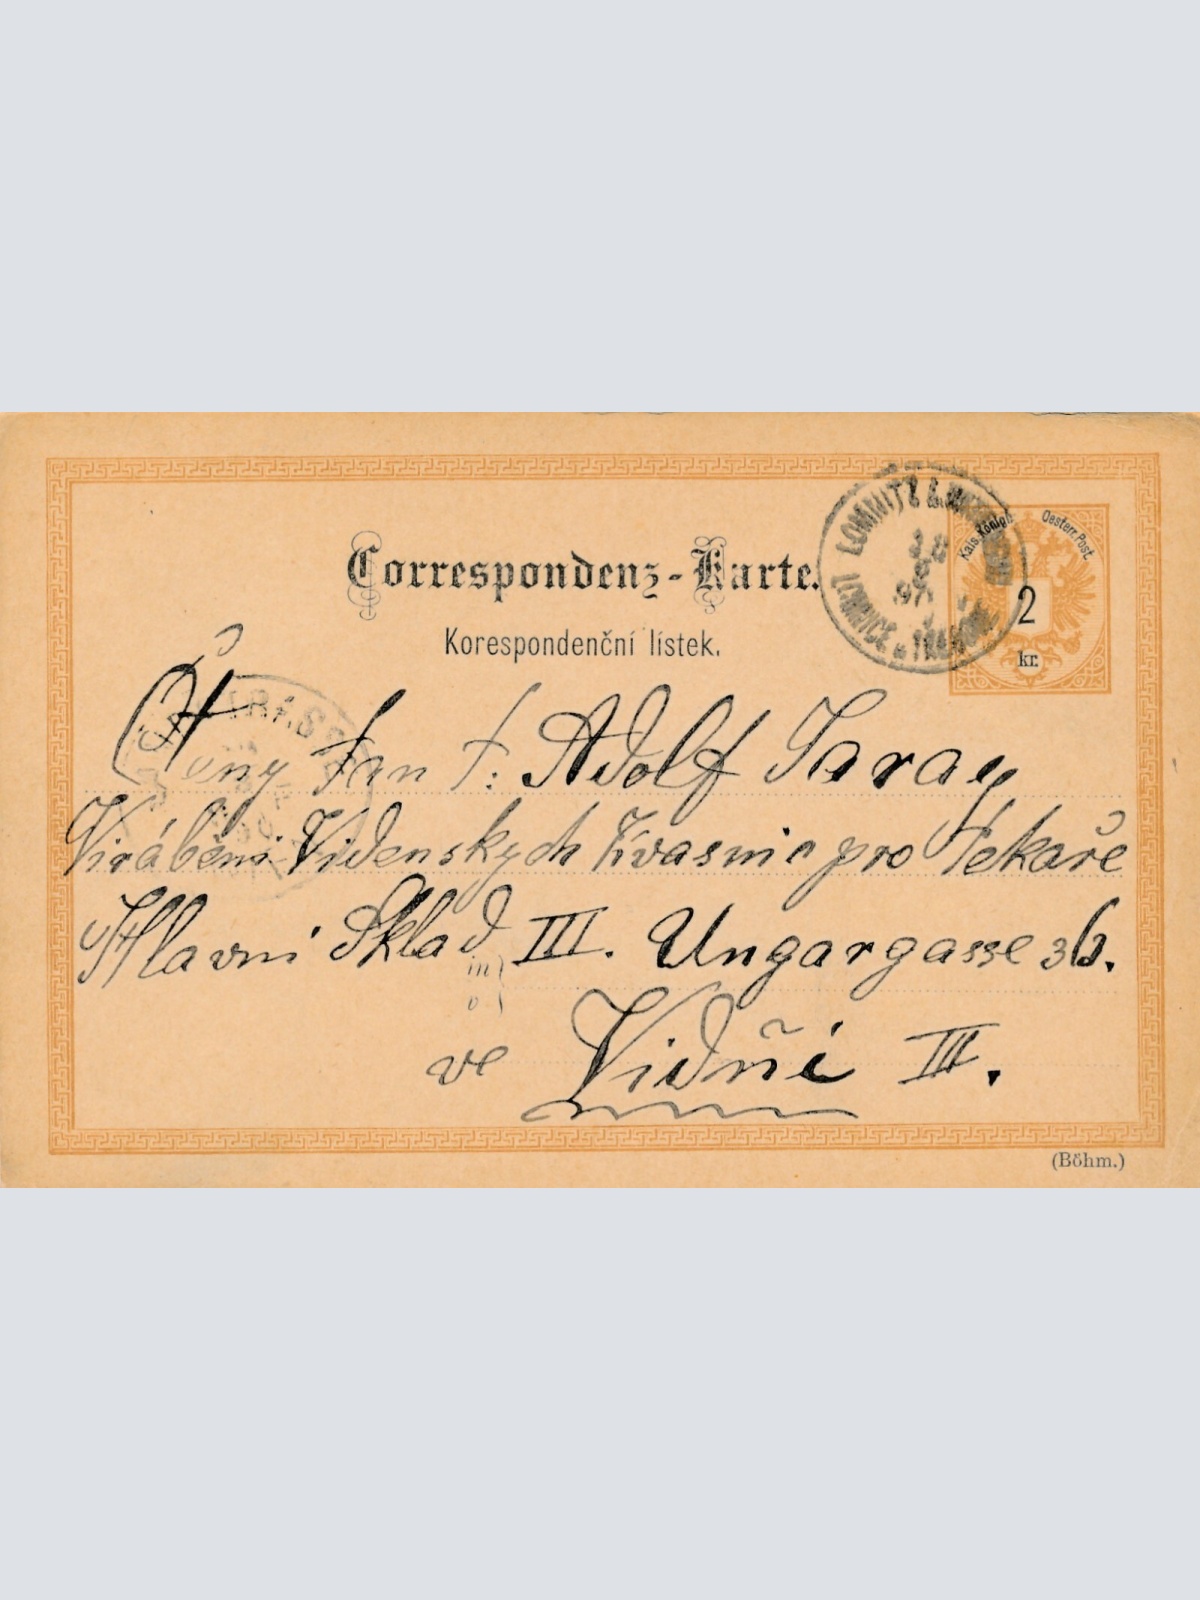 Correspondenz-Karte.
Korespondenční lístek.
Kais. Königl. Oesterr. Post.
2
kr.
LOMNITZ
LOMNICE
Ctěný Pan F: Adolf Saray
Virábění Videnskych Kvasnic pro Pekaře
Hlavní Sklad III. Ungargasse 36.
ve Vidňi III.
(Böhm.)